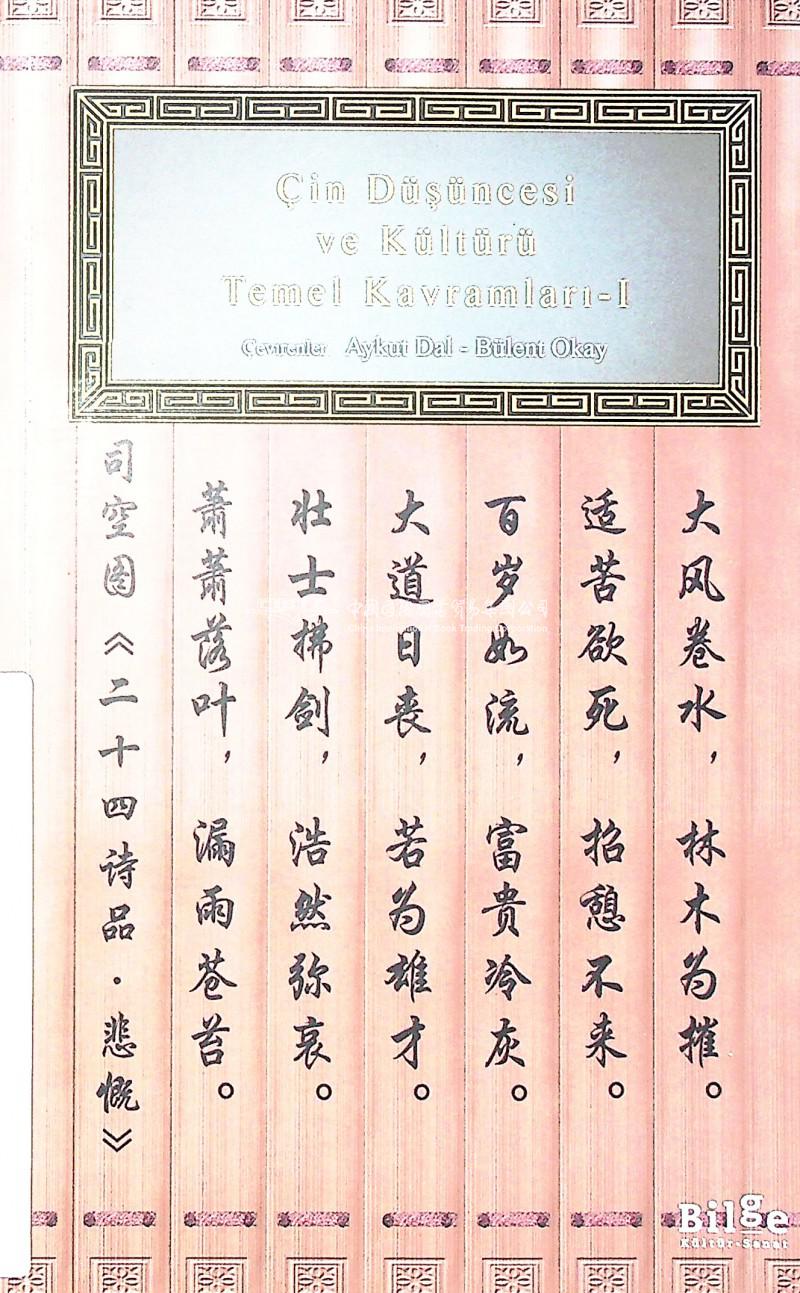 Çin Düşüncesi
ve Kültürü
Temel Kavramları-I
Çevirenler Aykut Dal - Bülent Okay
大风卷水，林木为摧。
适苦欲死，招憩不来。
百岁如流，富贵冷灰。
大道日丧，若为雄才。
壮士拂剑，浩然弥哀。
萧萧落叶，漏雨苍苔。
司空图《二十四诗品·悲慨》
Bilge
Kültür-Sanat